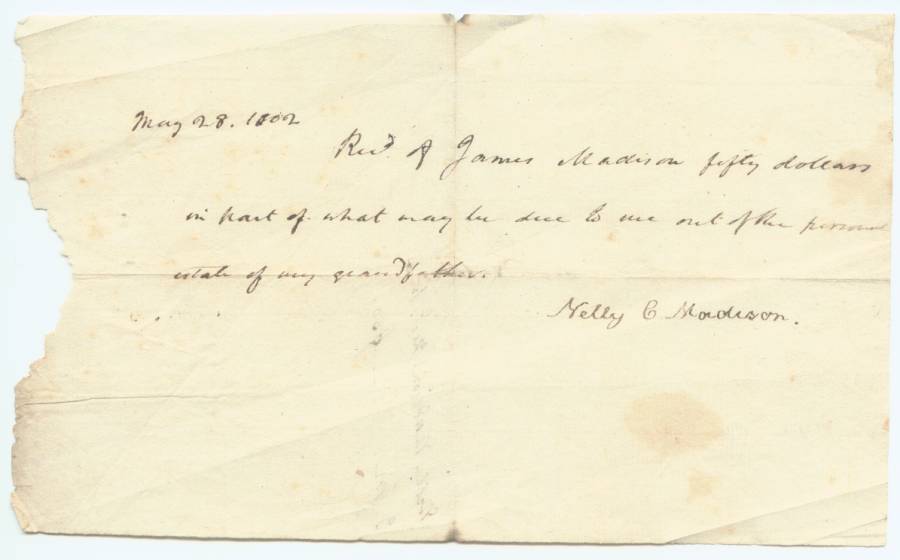 May 28. 1802
Recd. of James Madison fifty dollars
in part of what may be due to me out of the personal
estate of my grandfather.
Nelly C Madison.